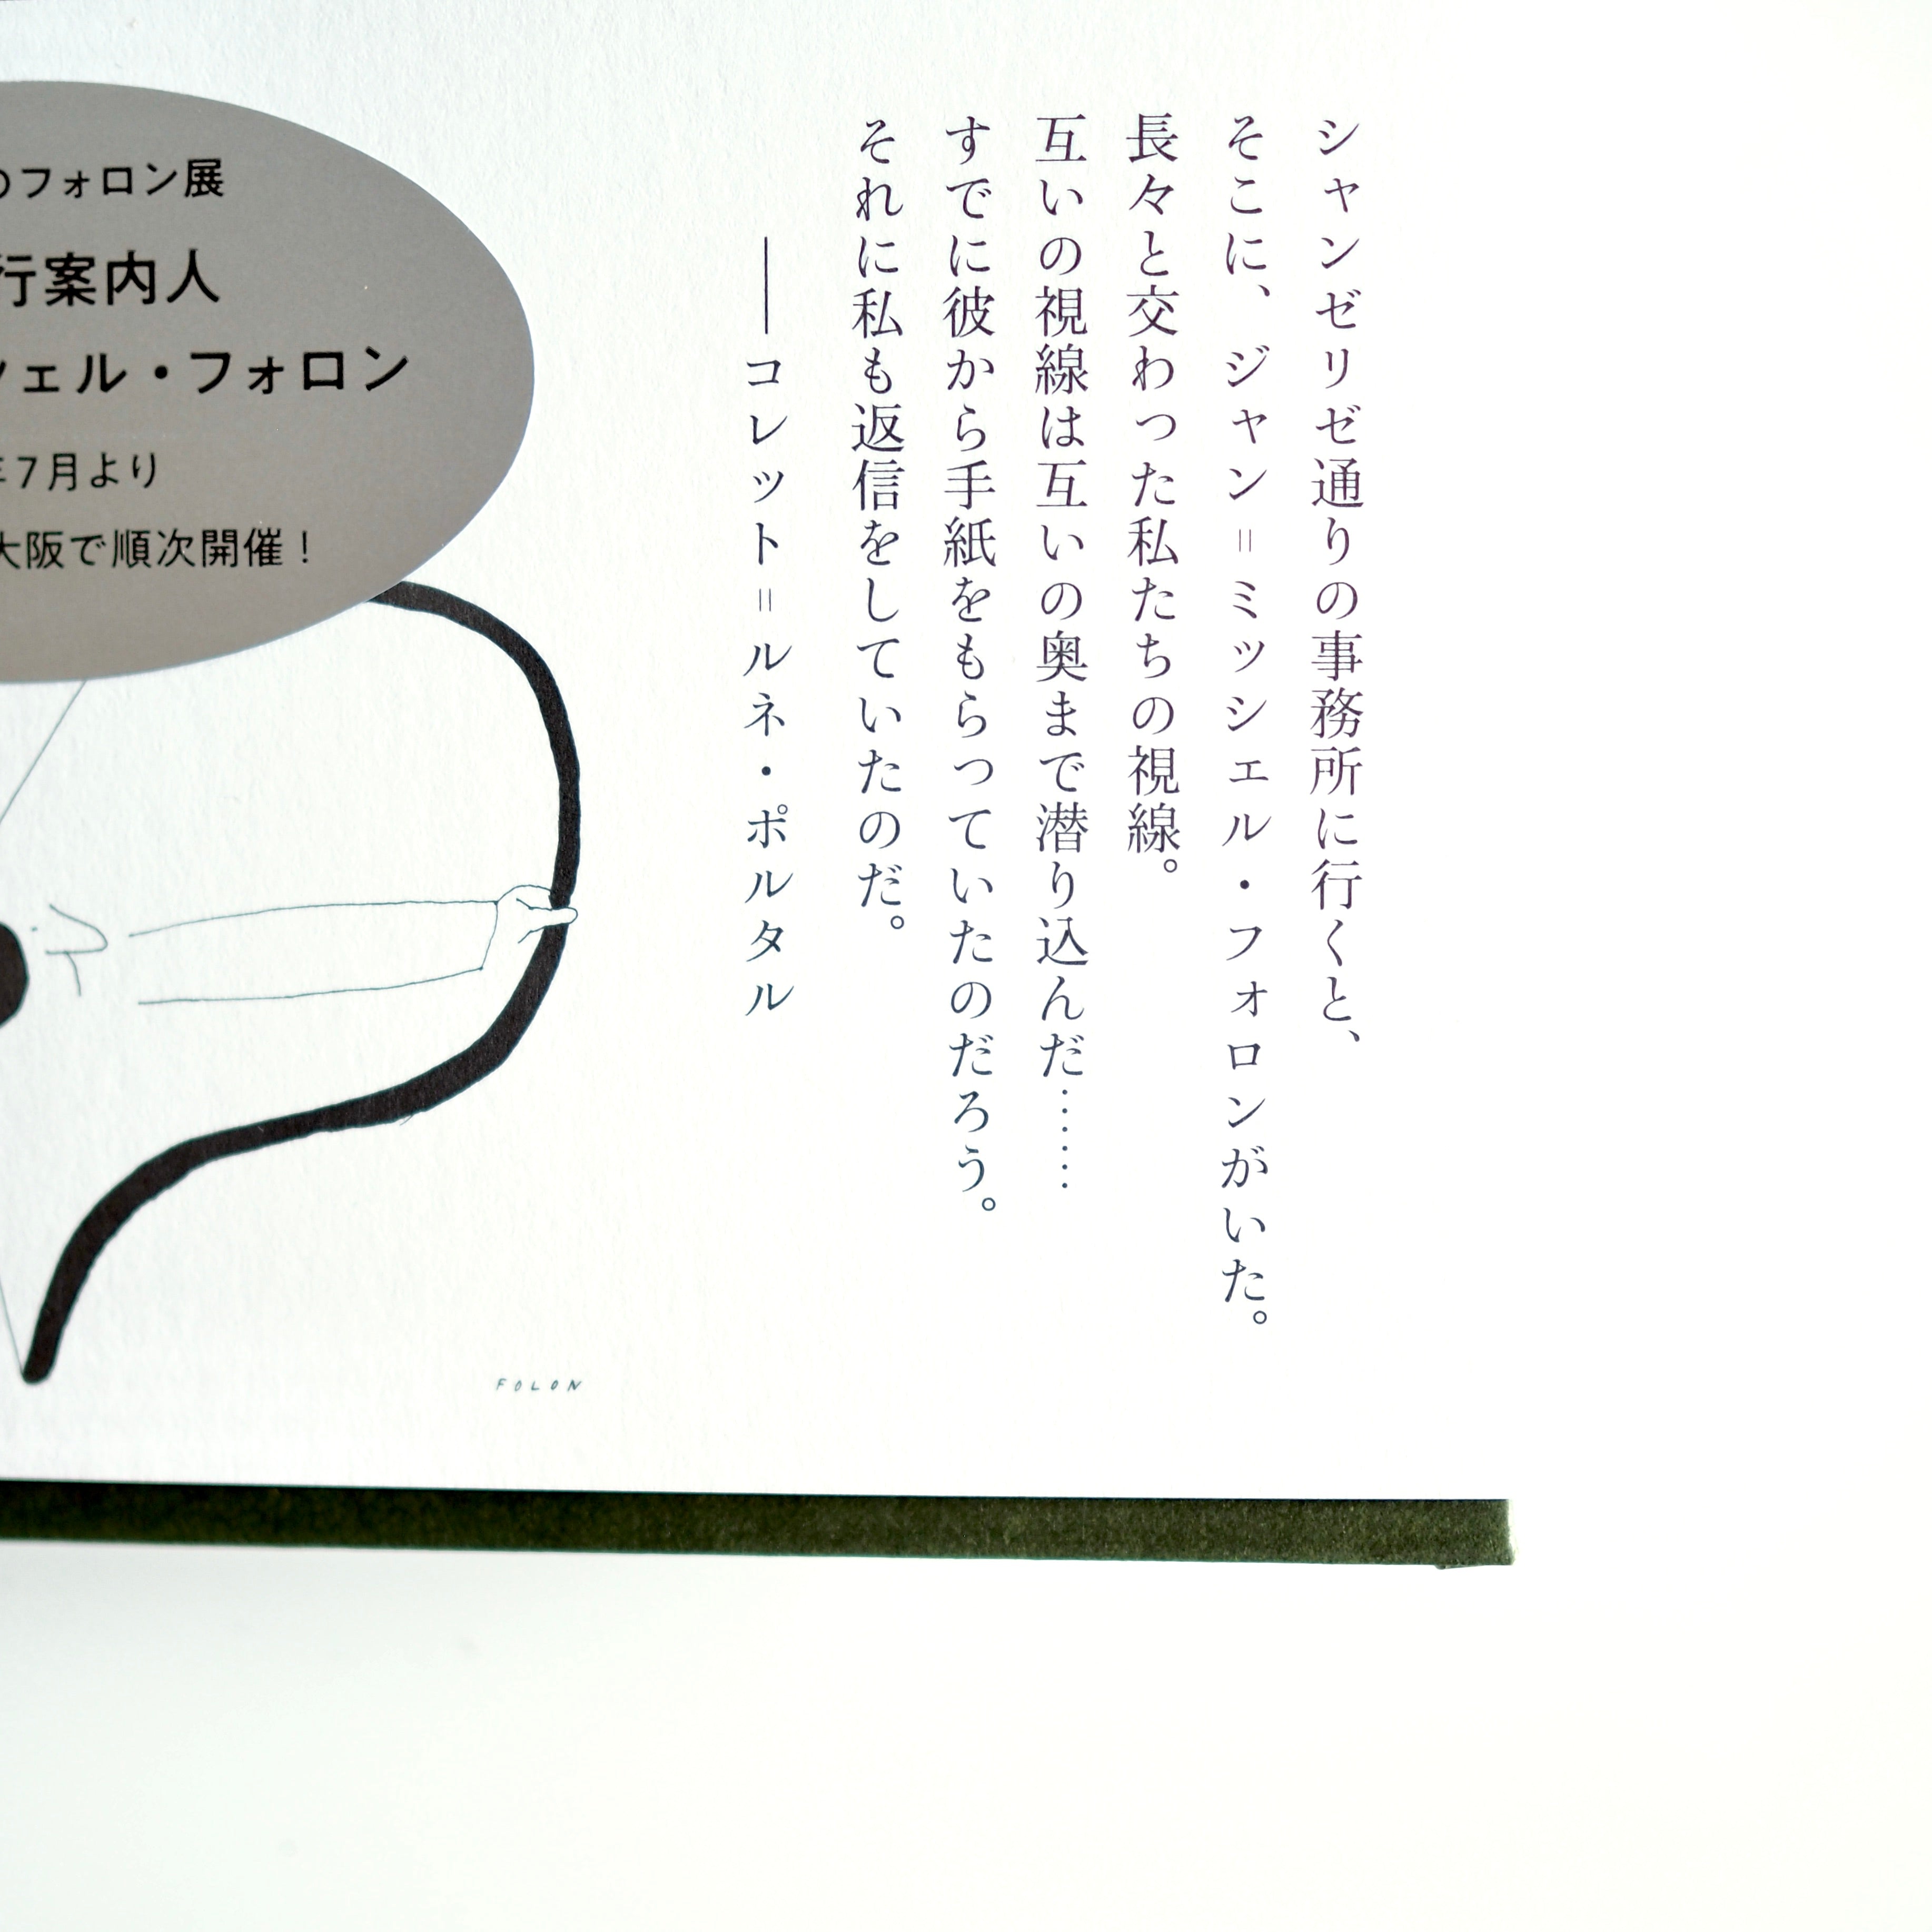 シャンゼリゼ通りの事務所に行くと、
そこに、ジャン＝ミッシェル・フォロンがいた。
長々と交わった私たちの視線。
互いの視線は互いの奥まで潜り込んだ……
すでに彼から手紙をもらっていたのだろう。
それに私も返信をしていたのだ。
――コレット＝ルネ・ポルタル
のフォロン展
行案内人
シェル・フォロン
年7月より
大阪で順次開催！
FOLON